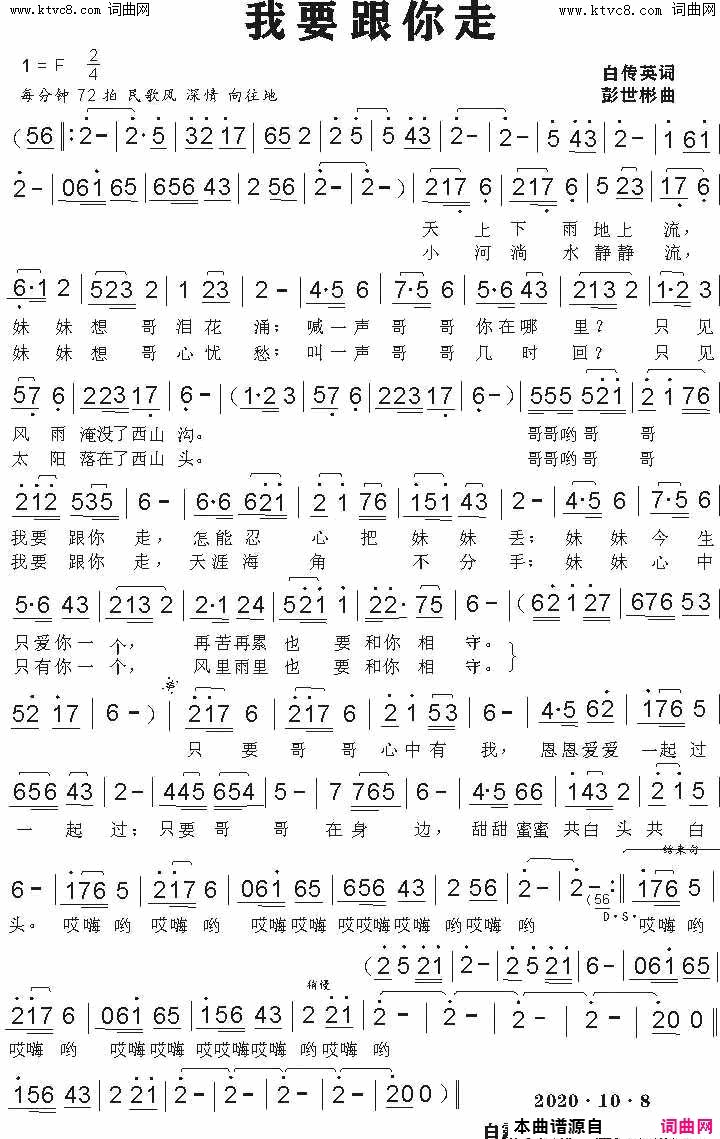 www.ktvc8.com 词曲网
www.ktvc8.com 词曲网
我要跟你走
1=F 2/4
白传英词
每分钟 72 拍 民歌风 深情 向往地
彭世彬曲
(56 ‖: 2- | 2·5 | 32 17 | 65 2 | 2 5 | 5 43 | 2- | 2- | 5 43 | 2- | 1 61 |
2- | 061 65 | 656 43 | 2 56 | 2- | 2- ) | 217 6 | 217 6 | 5 23 | 17 6 |
天 上 下 雨 地 上 流，
小 河 淌 水 静 静 流，
6·1 2 | 523 2 | 1 23 | 2- | 4·5 6 | 7·5 6 | 5·6 43 | 213 2 | 1·2 3 |
妹 妹 想 哥 泪 花 涌；喊 一 声 哥 哥 你 在 哪 里？ 只 见
妹 妹 想 哥 心 忧 愁；叫 一 声 哥 哥 几 时 回？ 只 见
57 6 | 223 17 | 6- | (1·2 3 | 57 6 | 223 17 | 6- ) | 555 521 | 2 1 76 |
风 雨 淹没了西山 沟。 哥哥哟哥 哥
太 阳 落在了西山 头。 哥哥哟哥 哥
212 535 | 6- | 6·6 621 | 2 1 76 | 151 43 | 2- | 4·5 6 | 7·5 6 |
我要 跟你 走，怎能忍 心 把 妹 妹 丢；妹 妹 今 生
我要 跟你 走，天涯海 角 不 分 手；妹 妹 心 中
5·6 43 | 213 2 | 2·1 24 | 521 1 | 22· 75 | 6- | (62 1 27 | 676 53 |
只爱你一 个， 再苦再累 也 要 和你 相 守。
只有你一 个， 风里雨里 也 要 和你 相 守。
52 17 | 6- ) | 217 6 | 217 6 | 2 1 53 | 6- | 4·5 62 | 176 5 |
只 要 哥 哥 心中有 我， 恩恩爱爱 一起 过
656 43 | 2- | 445 654 | 5- | 7 765 | 6- | 4·5 66 | 143 2 | 21 5 |
一 起 过；只要 哥 哥 在 身 边，甜甜 蜜蜜 共白 头 共 白
结束句
6- | 176 5 | 217 6 | 061 65 | 656 43 | 2 21 | 2- | 2- (56 :‖ 176 5 |
D·S·
头。 哎嗨 哟 哎嗨 哟 哎嗨哎嗨 哎哎嗨哎嗨 哟哎嗨 哟 哎嗨 哟
(2 5 21 | 2 5 21 | 6- | 061 65 |
稍慢
217 6 | 061 65 | 156 43 | 2 21 | 2- | 2- | 2- | 2- | 200 |
哎嗨 哟 哎嗨 哎嗨 哎哎嗨哎嗨 哟 哎嗨 哟
156 43 | 2 21 | 2- | 2- | 200 ) ‖
2020·10·8
本曲谱源自
词曲网